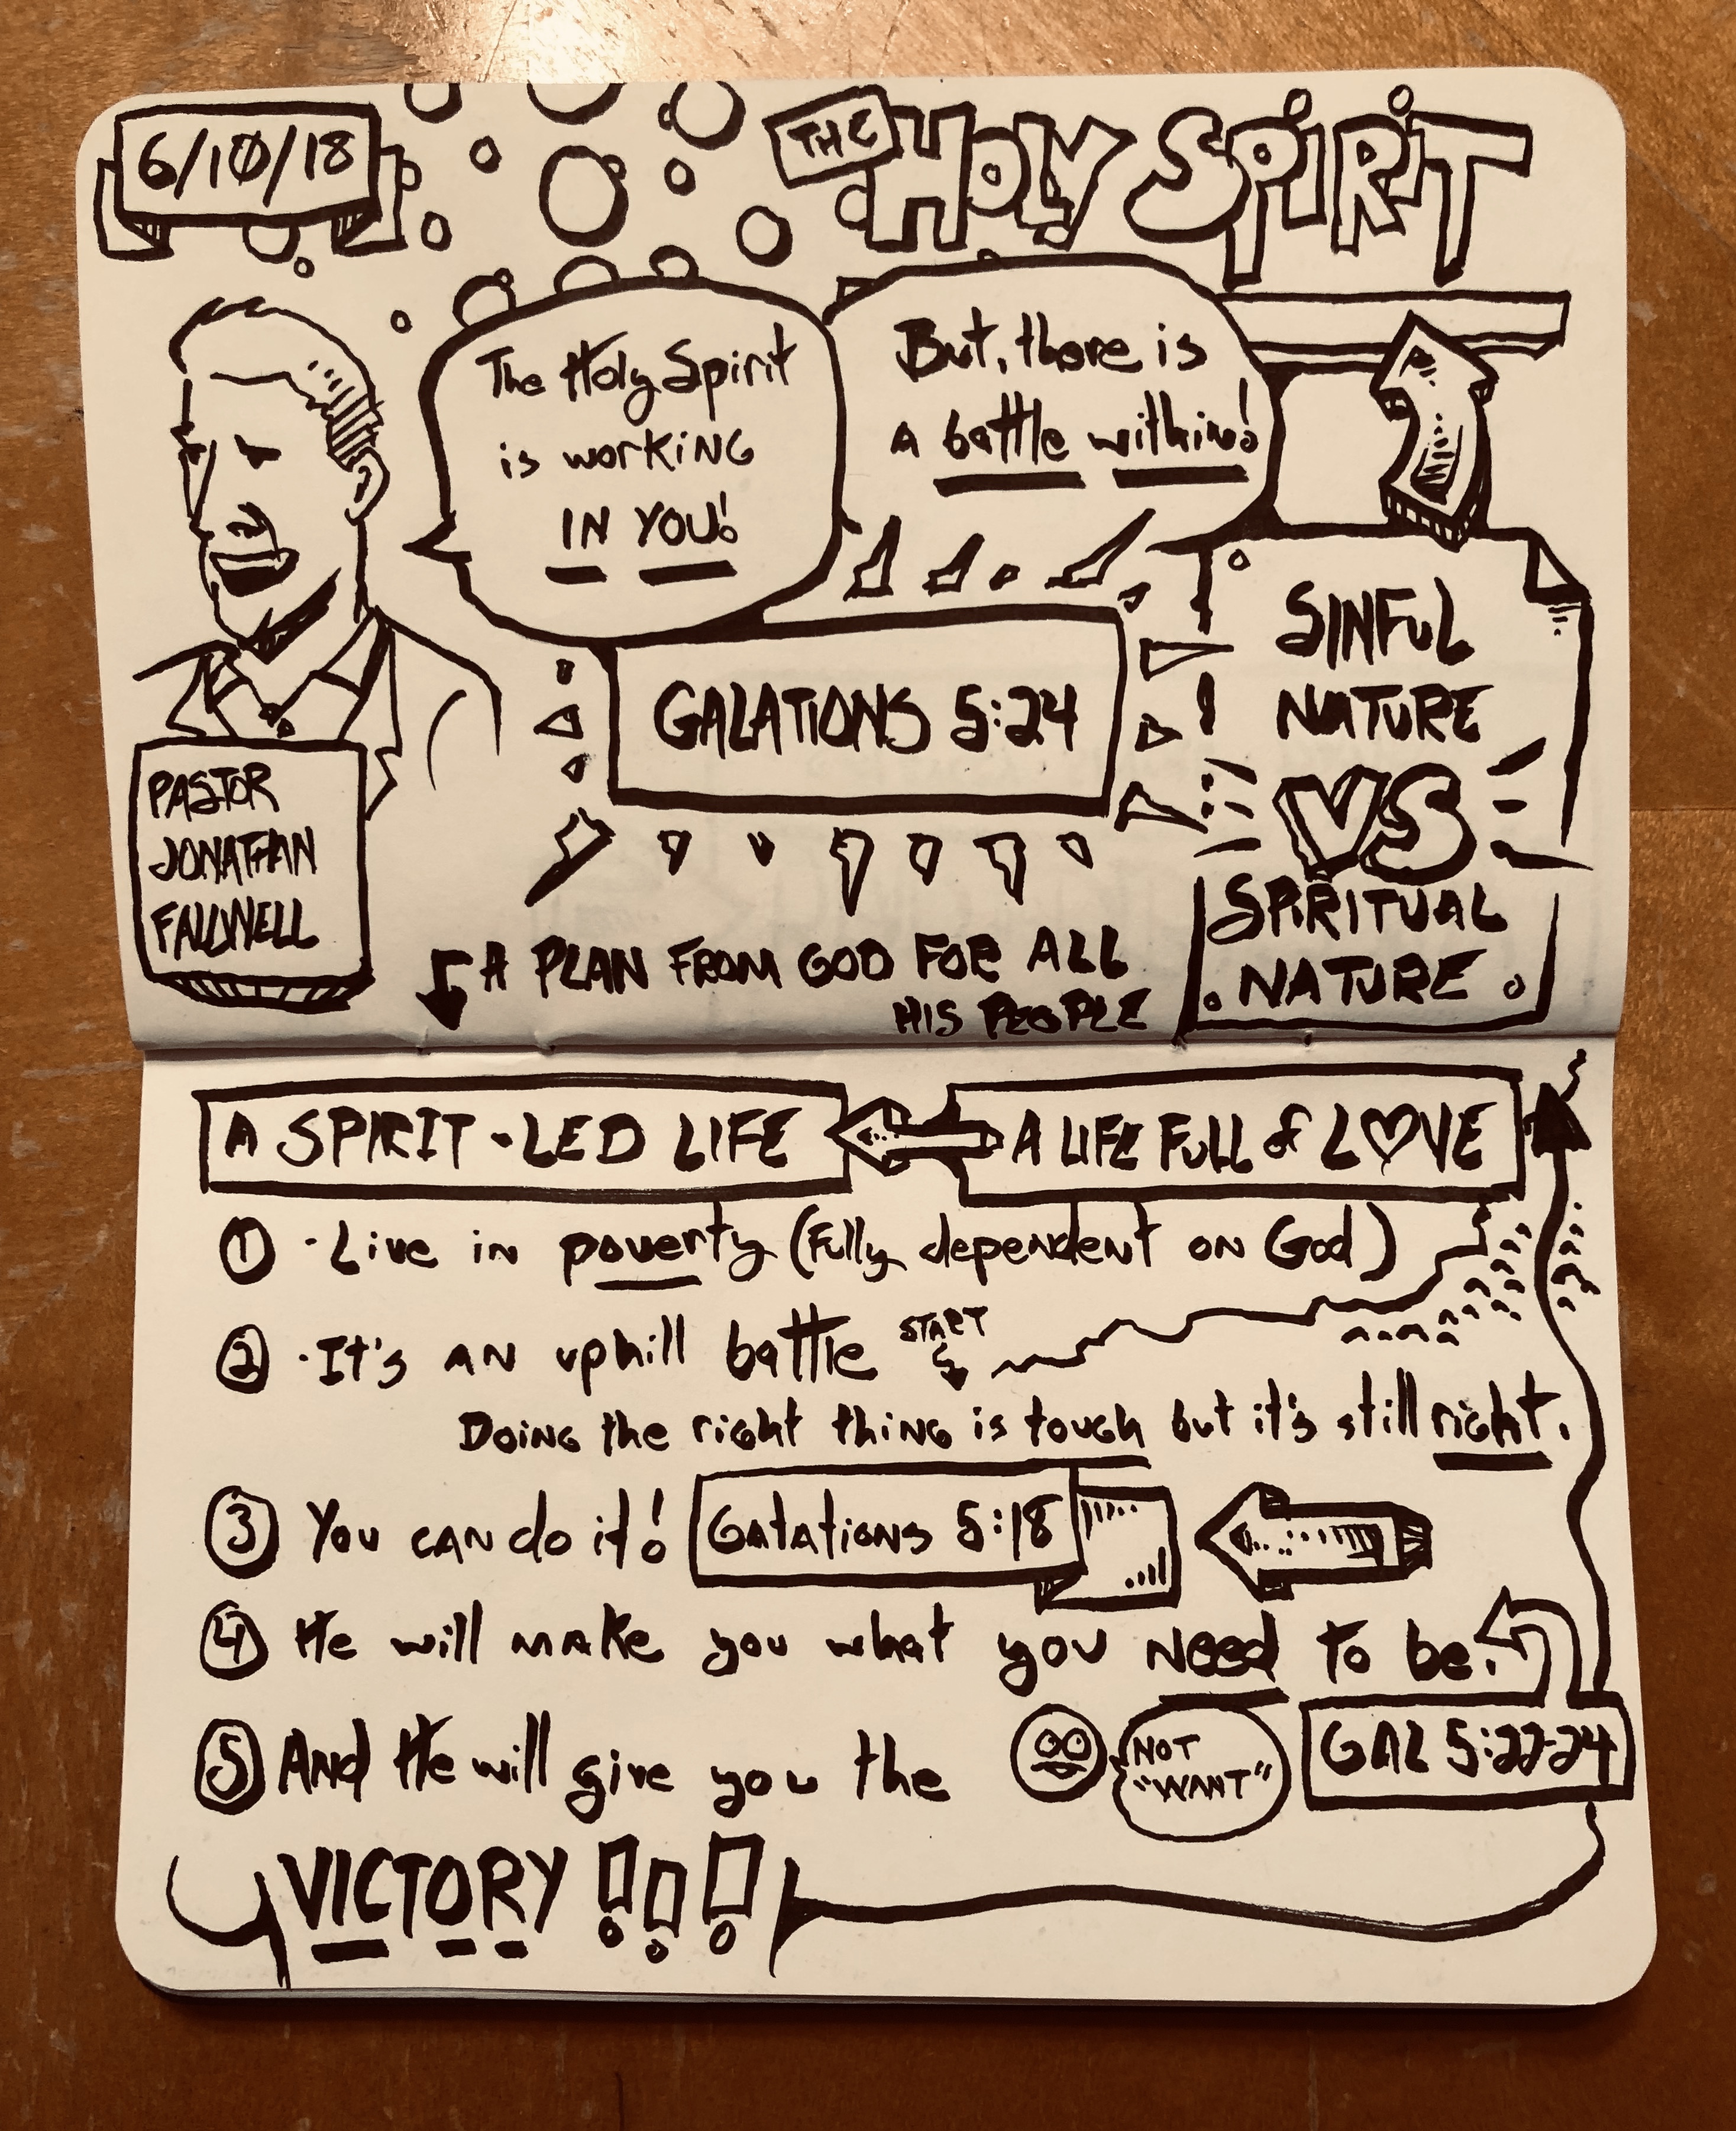 6/10/18
THE HOLY SPIRIT
The Holy Spirit
is working
IN YOU!
But, there is
A battle within!
GALATIONS 5:24
SINFUL
NATURE
VS
SPIRITUAL
NATURE
PASTOR
JONATHAN
FALWELL
A PLAN FROM GOD FOR ALL
HIS PEOPLE
A SPIRIT-LED LIFE
A LIFE FULL of LOVE
1 · Live in poverty (Fully dependent on God)
2 · It's an uphill battle
START
Doing the right thing is tough but it's still right.
3 You can do it!
Galations 5:18
4 He will make you what you need to be.
5 And He will give you the
NOT
"WANT"
GAL 5:22-24
VICTORY !!!